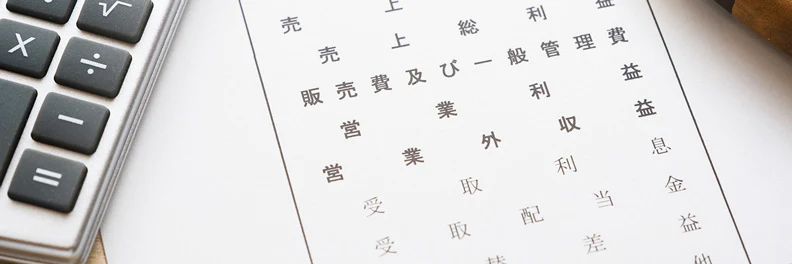 √
×
÷
−
=
売上
売上総利益
販売費及び一般管理費
営業利益
営業外収益
受取利息
受取配当金
替差益